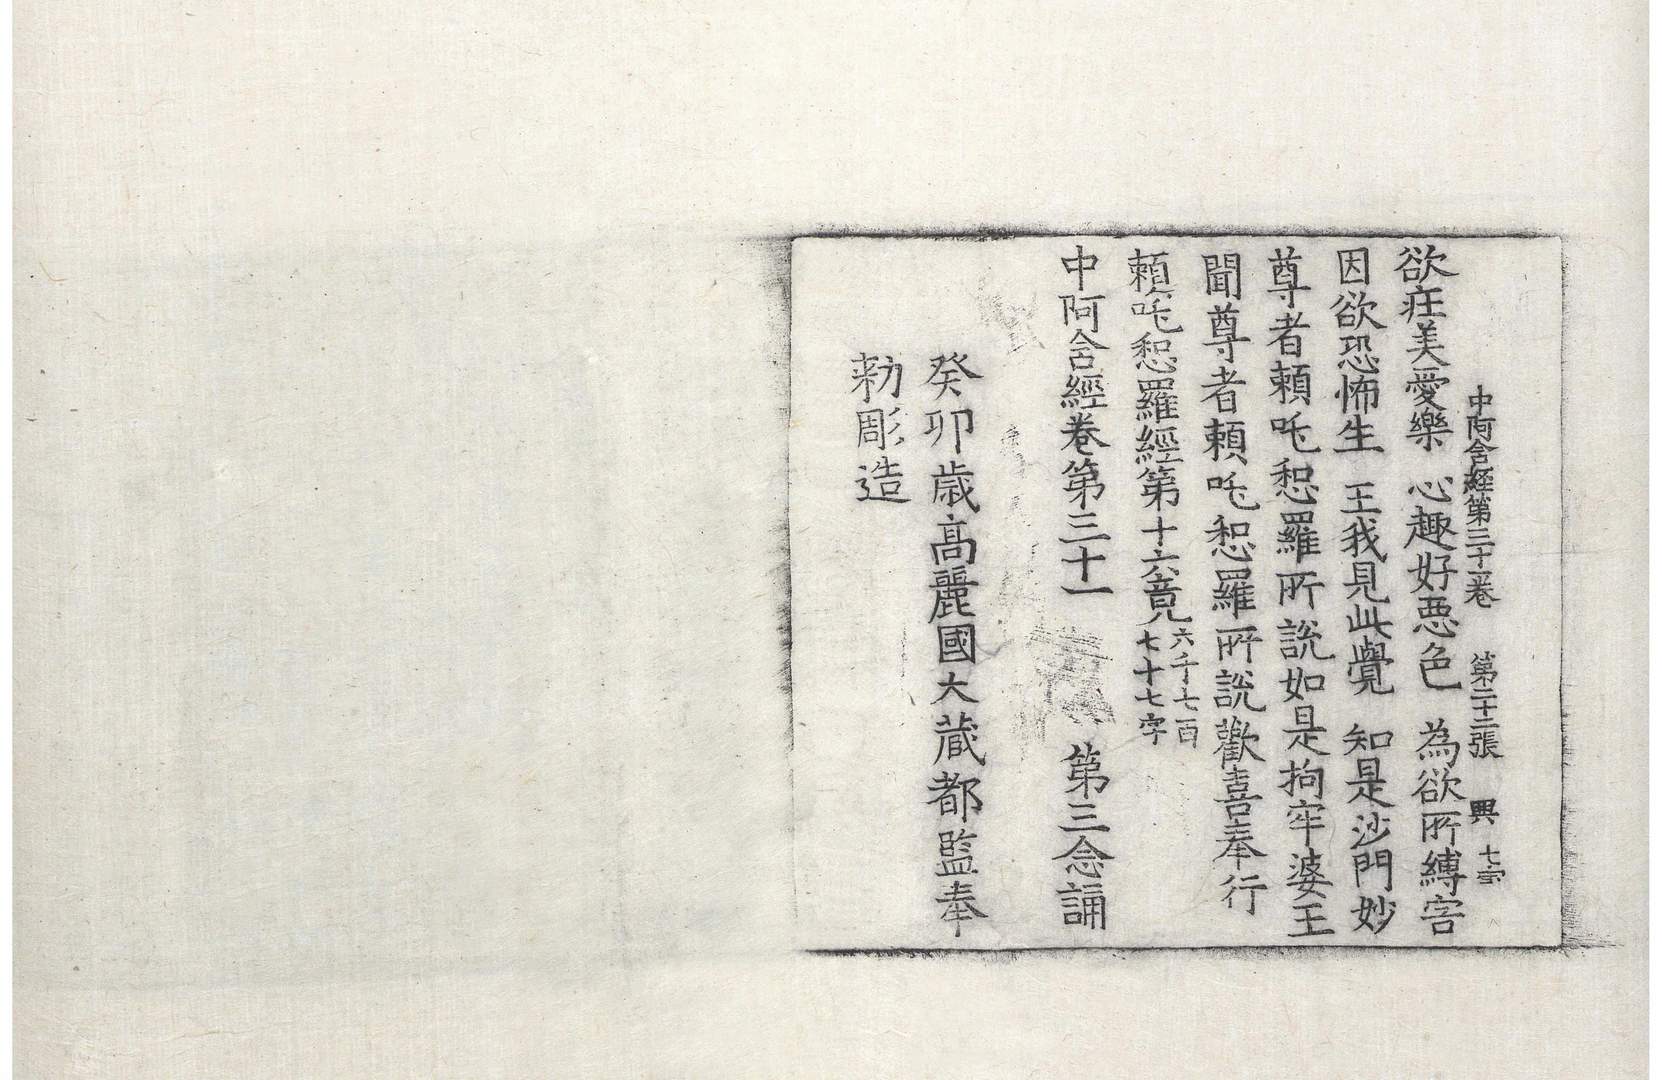 中阿含經第三十一卷 第二十二張 興
欲疰美愛樂 心趣好惡色 為欲所縛害
因欲恐怖生 王我見此覺 知是沙門妙
尊者賴吒惒羅所說如是拘牢婆王
聞尊者賴吒惒羅所說歡喜奉行
賴吒惒羅經第十六竟 六千七百
七十七字
中阿含經卷第三十一 第三念誦
癸卯歲高麗國大藏都監奉
勑彫造